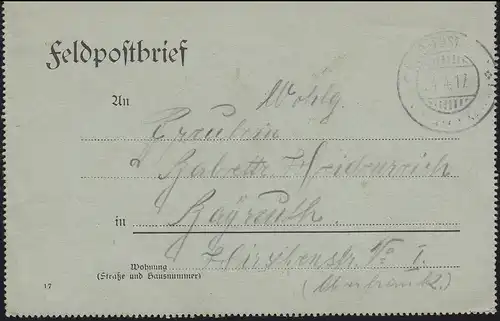 Feldpostbrief
An Wohlg.
Fräulein
Babette Heidenreich
in Bayreuth
Wohnung
(Straße und Hausnummer) Hirschenstr. No 1.
(Oberfrank.)
17